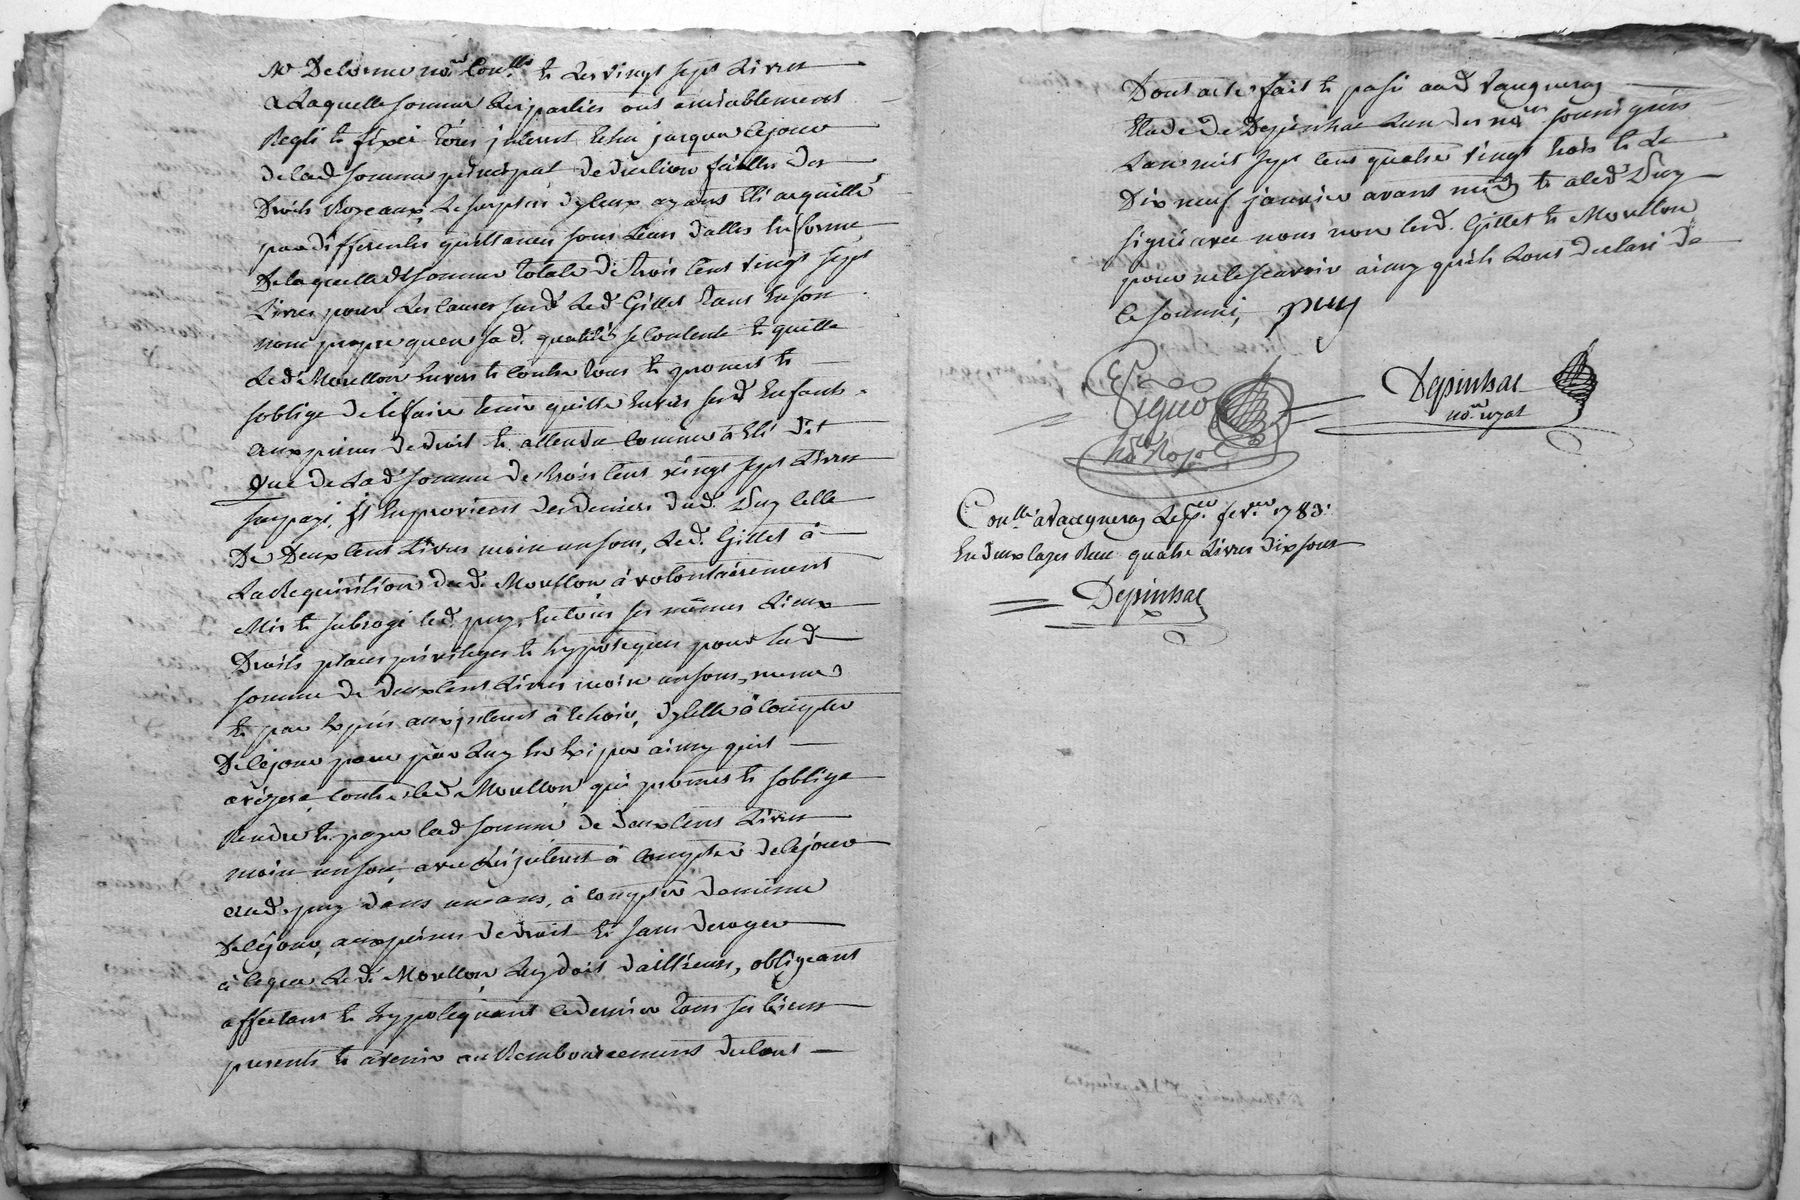 Me Delorme nore Con.lle et les vingt sept Livres
a laquelle somme les parties ont amiablement
Reglé et fixé tous interest echu jusqua ce jour
de lad somme principal deduction faitte des
Droits Royeaux le surplus dyleux ayant eté acquitté
par differentes quittances sous seon dattes en forme
De laquelle dt somme totale de trois cent vingt sept
Livres pour les causes susd. Led Gillet tant en son
nom propre quen sa d. qualité se contente et quitte
Led Moullon envers et contre tous et promet et
soblige de le faire tenir quitte envers sesd Enfants
aux peines de droit et attendu comme a eté dit
que de lad somme de trois cent vingt sept Livres
sus payé, il en provient des deniers dud. Puy celle
De Deux cent Livres moin un sous, Led. Gillet à
la Requisition dud. Moullon a volontairement
Mis et subrogé led. puy en tous ses mêmes Lieux
Droits places privileges et hypoteques pour lad
somme de deux cent Livres moin un sous, meme
et par exprés aux interest à echoir, dycelle à compter
De ce jour pour par Luy en exiper ainsy quil
avizera contre led Moullon qui promet et soblige
Rendre et payer lad somme de deux cens Livres
moin un sou, avec les interest à compter de ce jour
aud. puy dans un ans, à compter du meme
De ce jour, aux peines de droit et sans deroger
à ce que Led. Moullon Luy doit d'ailleurs, obligeant
affectant et hypotequant ce dernier tous ses biens
presents et avenir au Remboursement du tout
Dont acte fait et passé aud Vaugneray
Etude de Depinhac lun des nores soussignés
Lan mil sept cent quatre vingt trois et le
Dix neuf janvier avant midy et a led Puy
signé avec nous non lesd. Gillet et Moullon
pour ne le scavoir ainsy quils tous declaré de
ce sommé, puy
nore Roy
Depinhac
nore royal
Conllé a Vaugneray le per fevrier 1783.
En deux cazes Reçu quatre Livres dix sous
Depinhac